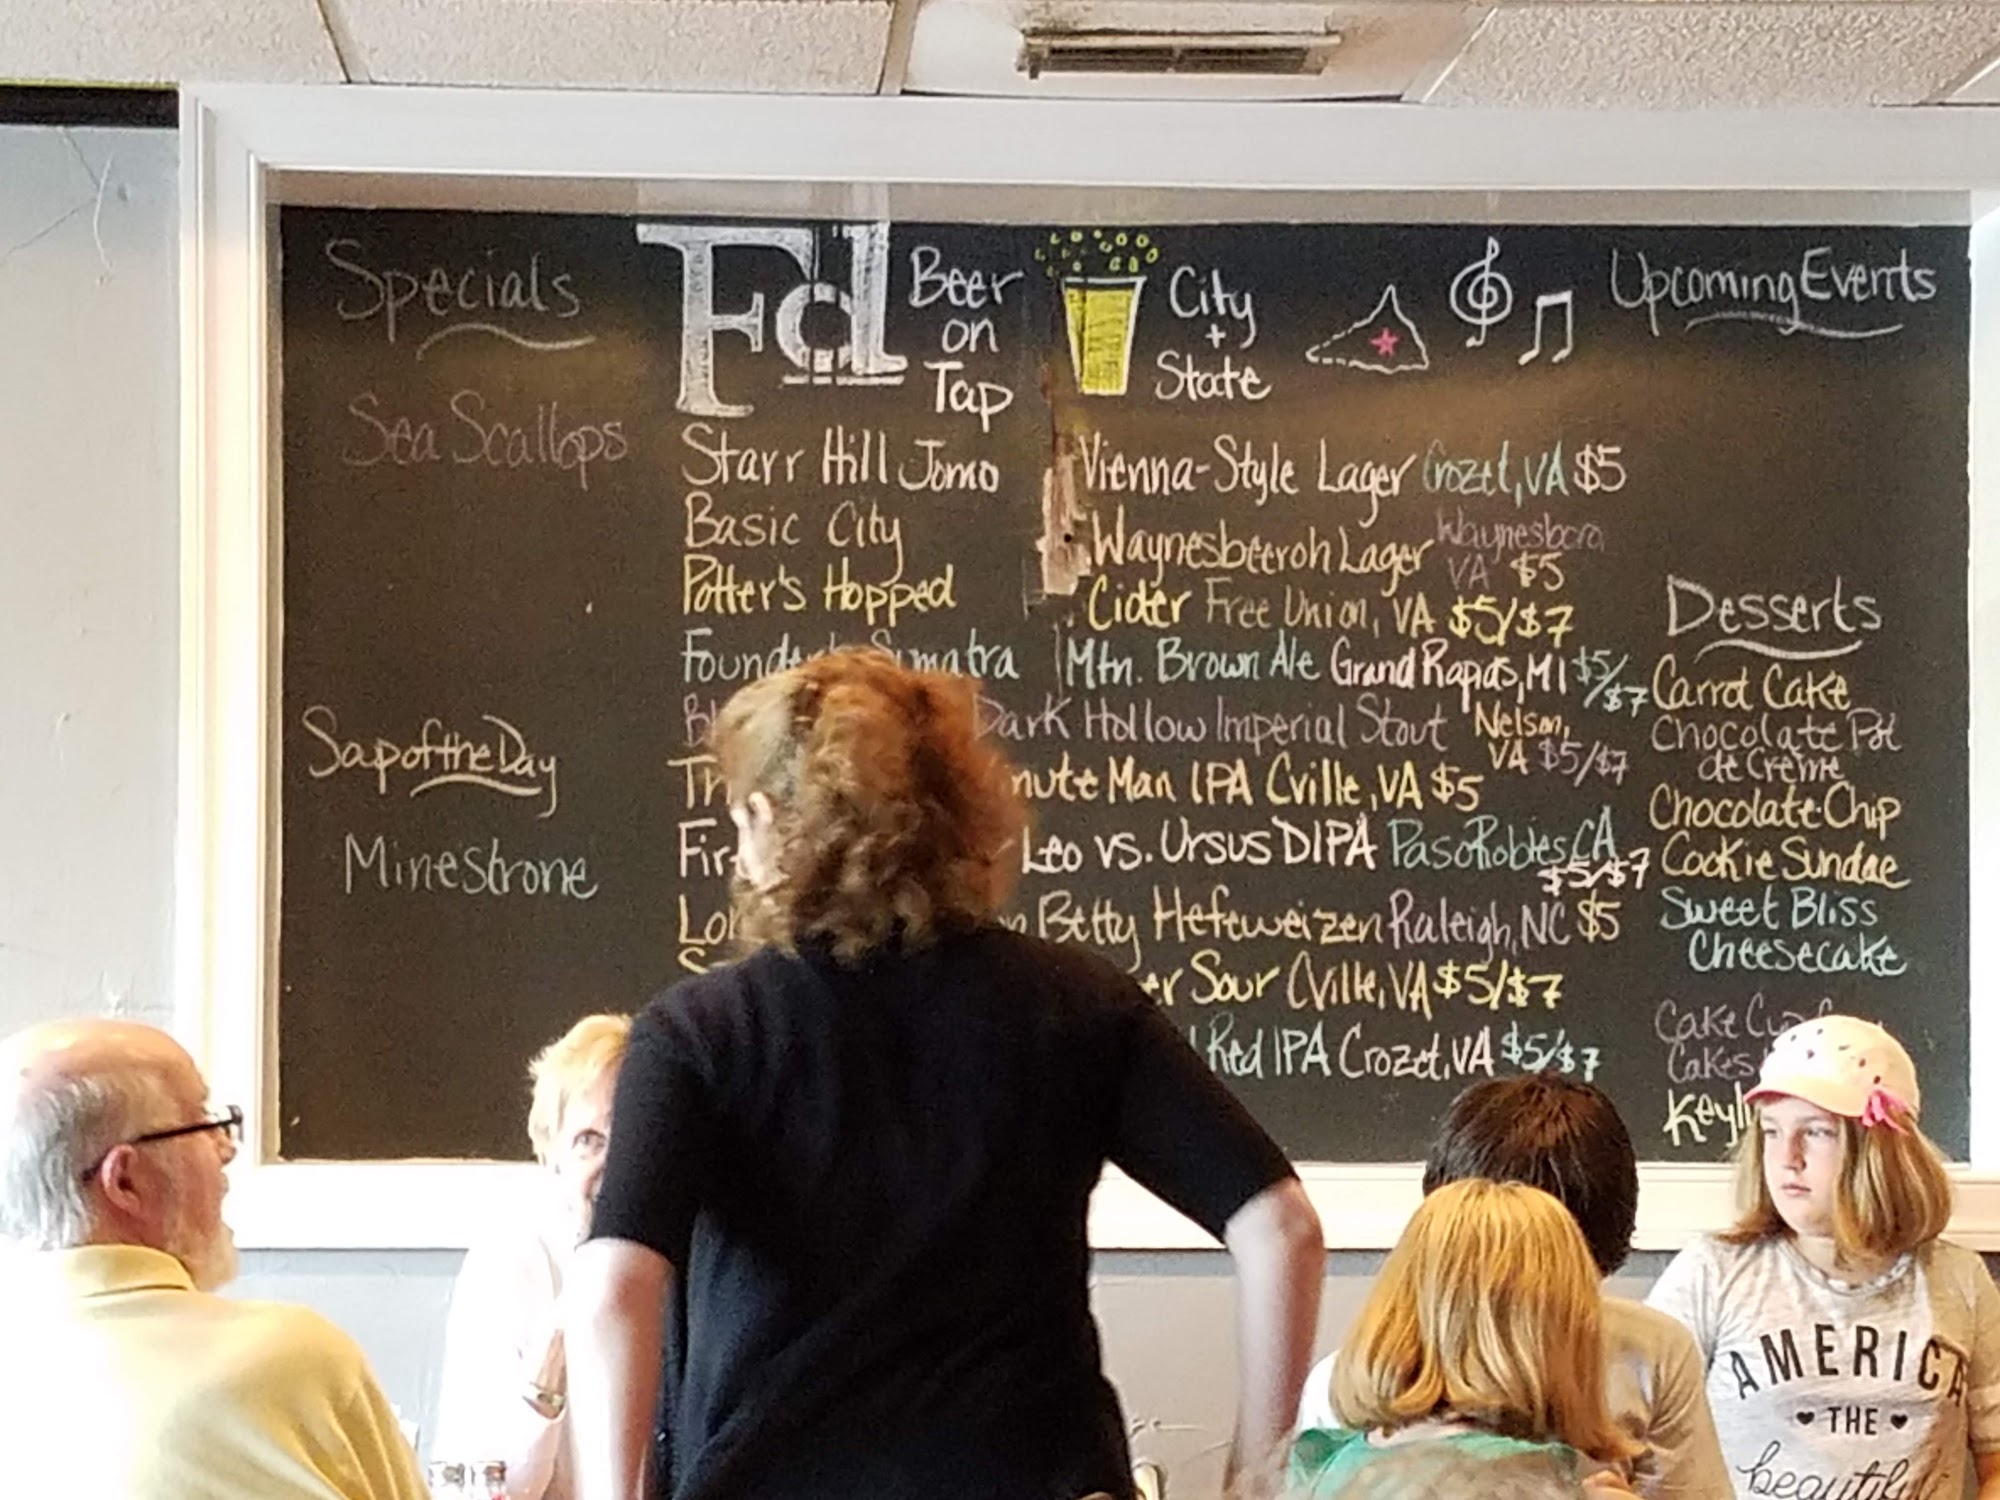 Specials
Sea Scallops
Sap of the Day
Minestrone
Fd
Beer
on
Tap
City
+
State
Upcoming Events
Starr Hill Jomo Vienna-Style Lager Crozet, VA $5
Basic City Waynesbeeroh Lager Waynesboro
VA $5
Potter's Hopped Cider Free Union, VA $5/$7
Sumatra Mtn. Brown Ale Grand Rapids, MI $5/
$7
Dark Hollow Imperial Stout Nelson,
VA $5/$7
Man IPA Cville, VA $5
Leo vs. Ursus DIPA Paso Robles, CA
$5/$7
Betty Hefeweizen Raleigh, NC $5
Sour Cville, VA $5/$7
Red IPA Crozet, VA $5/$7
Desserts
Carrot Cake
Chocolate Pot
de Crème
Chocolate Chip
Cookie Sundae
Sweet Bliss
Cheesecake
Cake
Cakes
AMERICA
THE